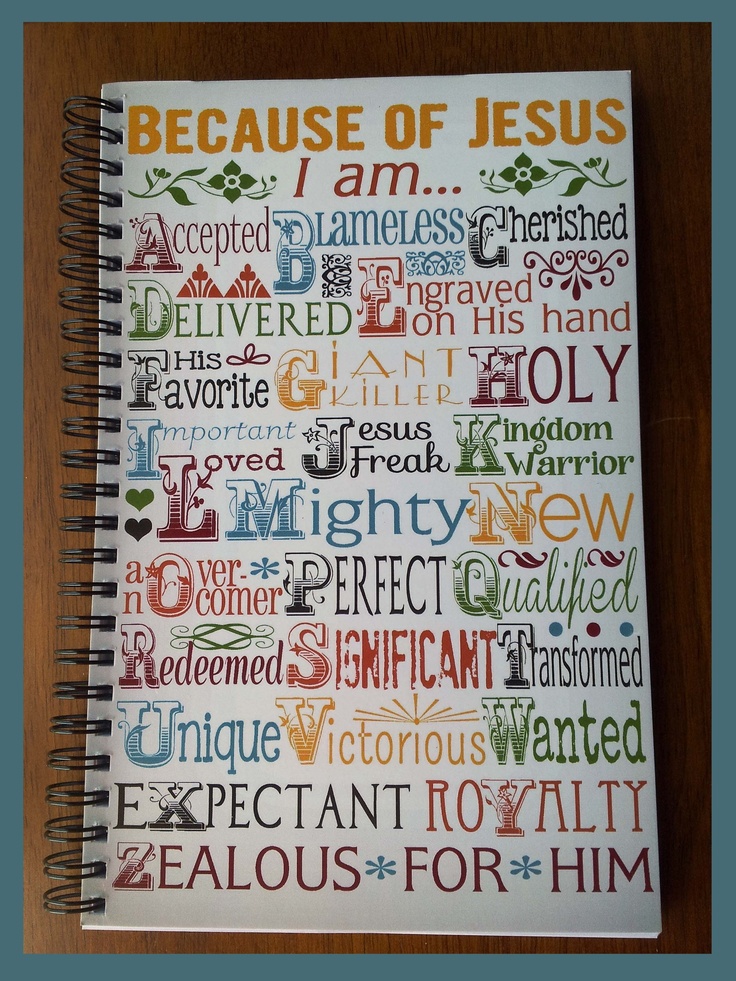 BECAUSE OF JESUS
I am...
Accepted BLAMELESS Cherished
DELIVERED Engraved on His hand
His Favorite GIANT KILLER HOLY
Important Jesus Freak Kingdom Warrior
Loved Mighty New
an Over-comer PERFECT Qualified
Redeemed SIGNIFICANT Transformed
Unique Victorious Wanted
EXPECTANT ROYALTY
ZEALOUS*FOR*HIM